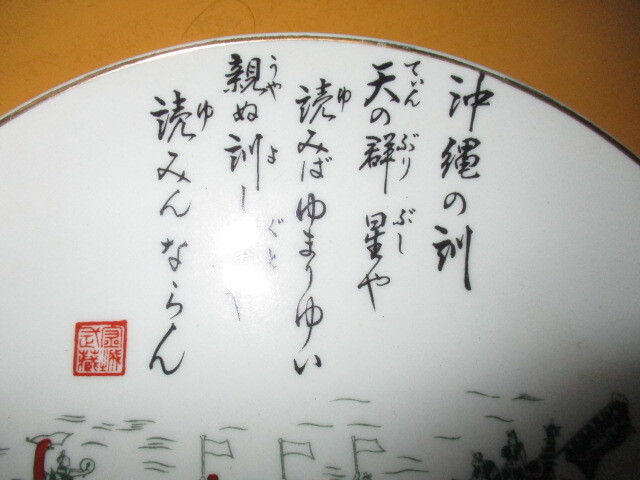 沖縄の訓
てぃん ぶり ぶし
天の群星や
ゆ
読みばゆまりゆい
うや よ ぐと
親ぬ訓し
ゆ
読みんならん